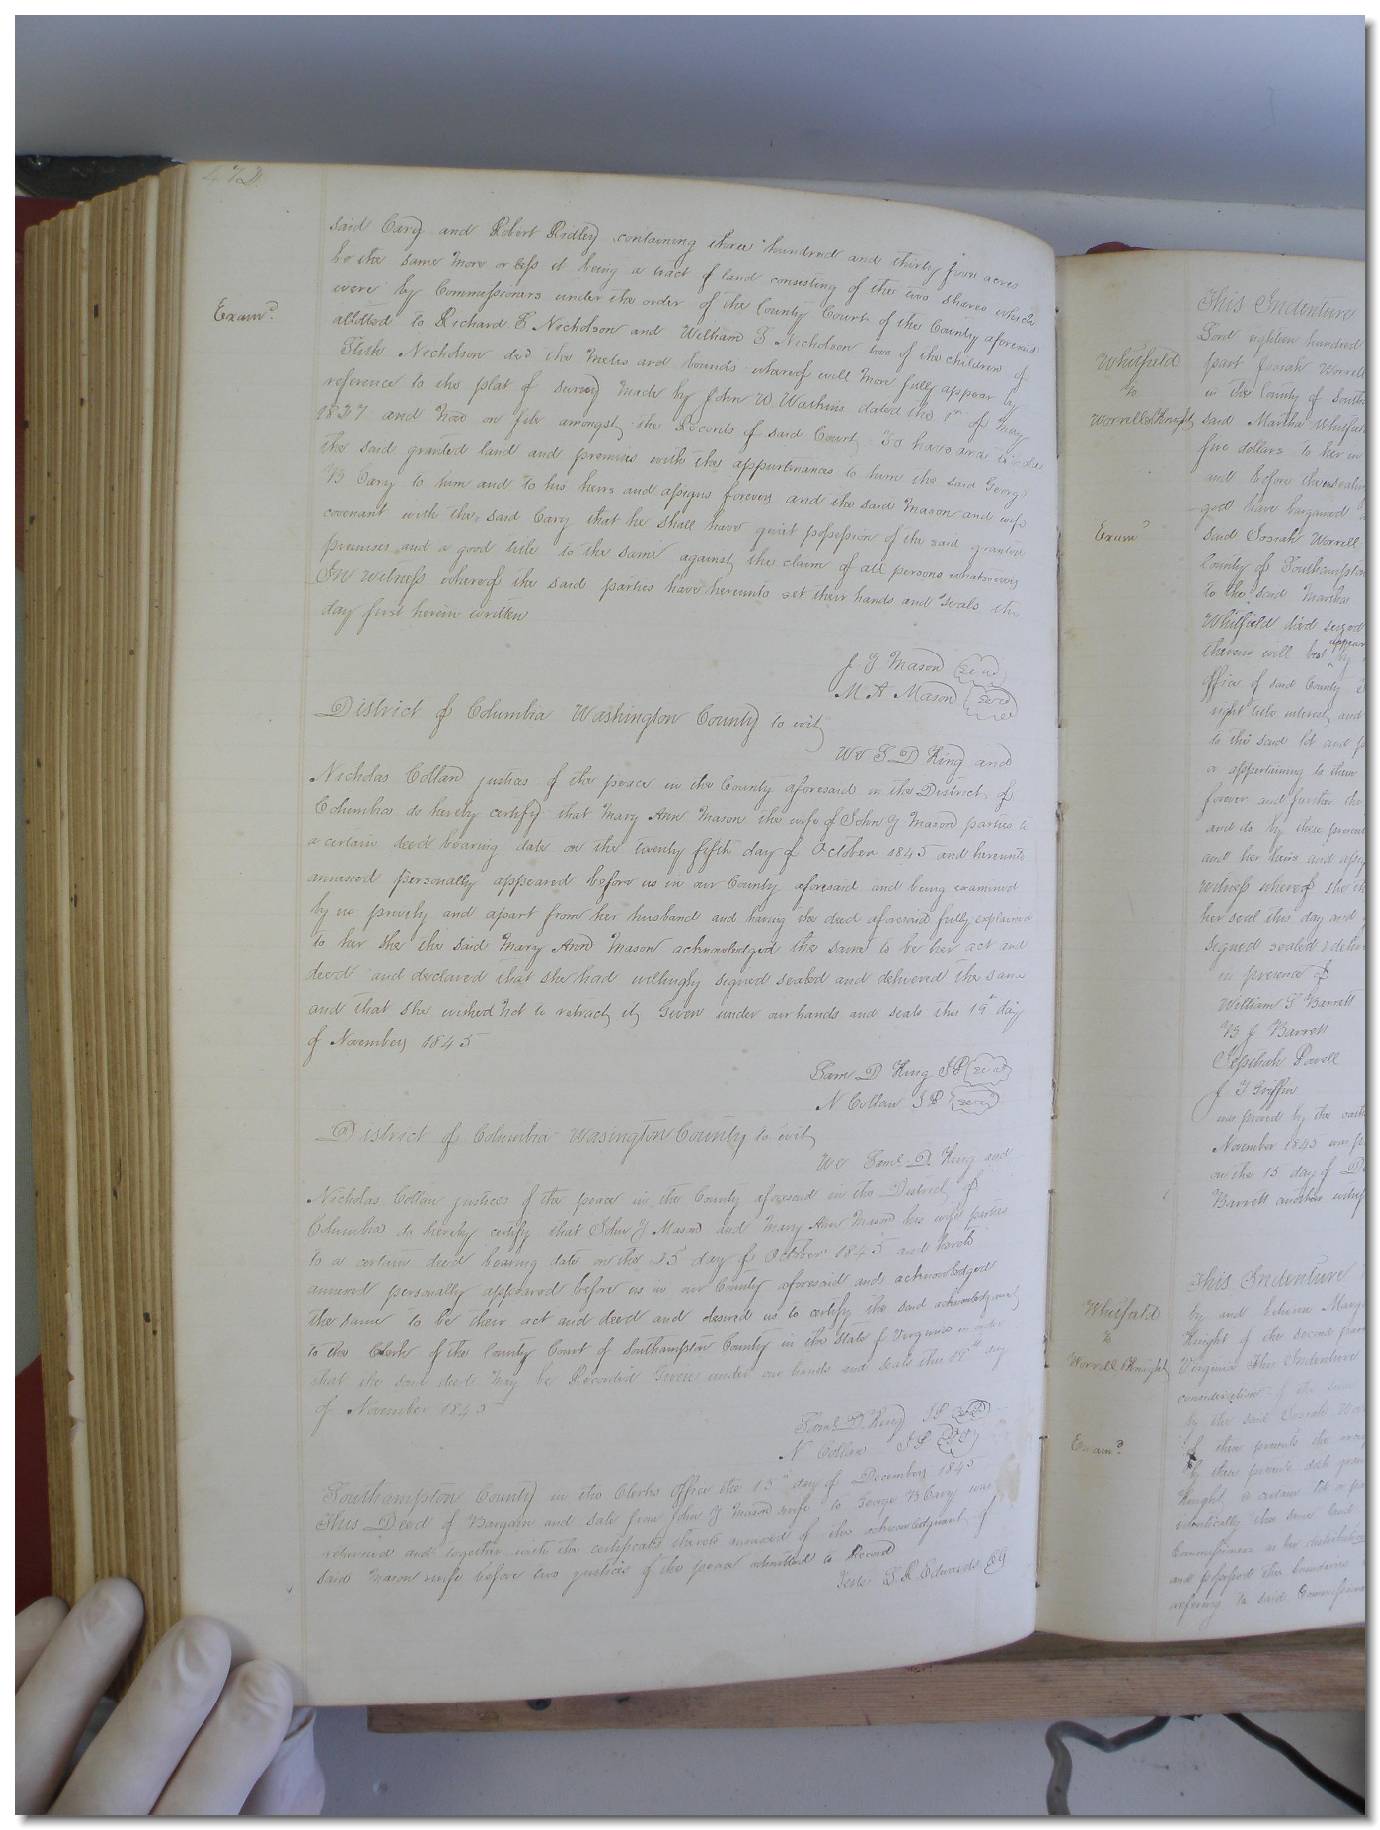 472
said Cary and Robert Ridley containing three hundred and thirty four acres
be the same more or less it being a tract of land consisting of the two shares which
were by Commissioners under the order of the County Court of the County aforesaid
Examd.
allotted to Richard E Nicholson and William T Nicholson two of the children of
Nicholson decd the metes and bounds whereof will more fully appear by
reference to the plat of survey made by John W. Watkins dated the 1st of May
1837 and now on file amongst the Records of said Court To have and to hold
the said granted land and premises with the appurtenances to him the said George
B Cary to him and to his heirs and assigns forever and the said Mason and wife
covenant with the said Cary that he shall have quiet possession of the said granted
premises and a good title to the same against the claim of all persons whatsoever
In witness whereof the said parties have hereunto set their hands and seals the
day first herein written
J Y Mason seal
M A Mason seal
District of Columbia Washington County to wit
We S D King and
Nicholas Collan justices of the peace in the County aforesaid in the District of
Columbia do hereby certify that Mary Ann Mason the wife of John Y Mason parties to
a certain deed bearing date on the twenty fifth day of October 1845 and hereunto
annexed personally appeared before us in our County aforesaid and being examined
by us privily and apart from her husband and having the deed aforesaid fully explained
to her she the said Mary Ann Mason acknowledged the same to be her act and
deed and declared that she had willingly signed sealed and delivered the same
and that she wished not to retract it Given under our hands and seals this 19th day
of November 1845
Saml D King JP seal
N Collan JP seal
District of Columbia Wasington County to wit
We Saml. D. King and
Nicholas Collan justices of the peace in the County aforesaid in the District of
Columbia do hereby certify that John Y Mason and Mary Ann Mason his wife parties
to a certain deed bearing date on the 25 day of October 1845 and hereto
annexed personally appeared before us in our County aforesaid and acknowledged
the same to be their act and deed and desired us to certify the said acknowledgment
to the Clerk of the County Court of Southampton County in the State of Virginia in order
that the said deed may be Recorded Given under our hands and seals this 19th day
of November 1845
Saml. D. King JP
N Collan JP
Southampton County in the Clerks office the 15th day of December 1845
This Deed of Bargain and Sale from John Y Mason wife to George B Cary was
returned and together with the certificate thereto annexed of the acknowledgment of
said Mason wife before two justices of the peace admitted to Record
Teste L R Edwards Clk
This Indenture
Lord eighteen hundred
Whitfield
part Josiah Worrell
to
in the County of South
Worrell & Knight
said Martha Whitfield
five dollars to her in
and before the sealing
Examd
good have bargained
said Josiah Worrell
County of Southampton
to the said Martha
Whitfield died seized
appear
therein will best by
office of said County
right title interest and
to the said lot and
or appertaining to them
forever and further the
and do by these present
and her heirs and
witness whereof she
her seal this day and
signed sealed & deliv
in presence of
William T Barrett
B J Barrett
Powell
J T Griffin
was proved by the oath
November 1845 was
on the 15 day of D
Barrett another witness
This Indenture
Whitfield
by and between Marg
to
Knight of the second part
Worrell & Knight
Virginia This Indenture
consideration of the sum
by the said Josiah Wo
Examd
of these presents
by these presents doth grant
Knight a certain lot
identically the same land
Commissioners in her distributive
and possessed the boundaries
referring to said Commissioners